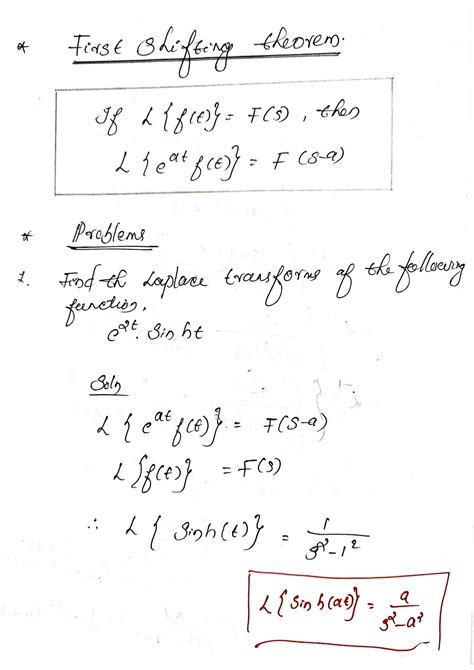 * First Shifting theorem.
If L{f(t)} = F(s), then
L{e^{at} f(t)} = F(s-a)
* Problems
1. Find th Laplace transforms of the following
function,
e^{2t}. Sin ht
Soln
L{e^{at} f(t)} = F(s-a)
L{f(t)} = F(s)
∴ L{Sinh(t)} = 1/(s²-1²)
L{Sinh(at)} = a/(s²-a²)